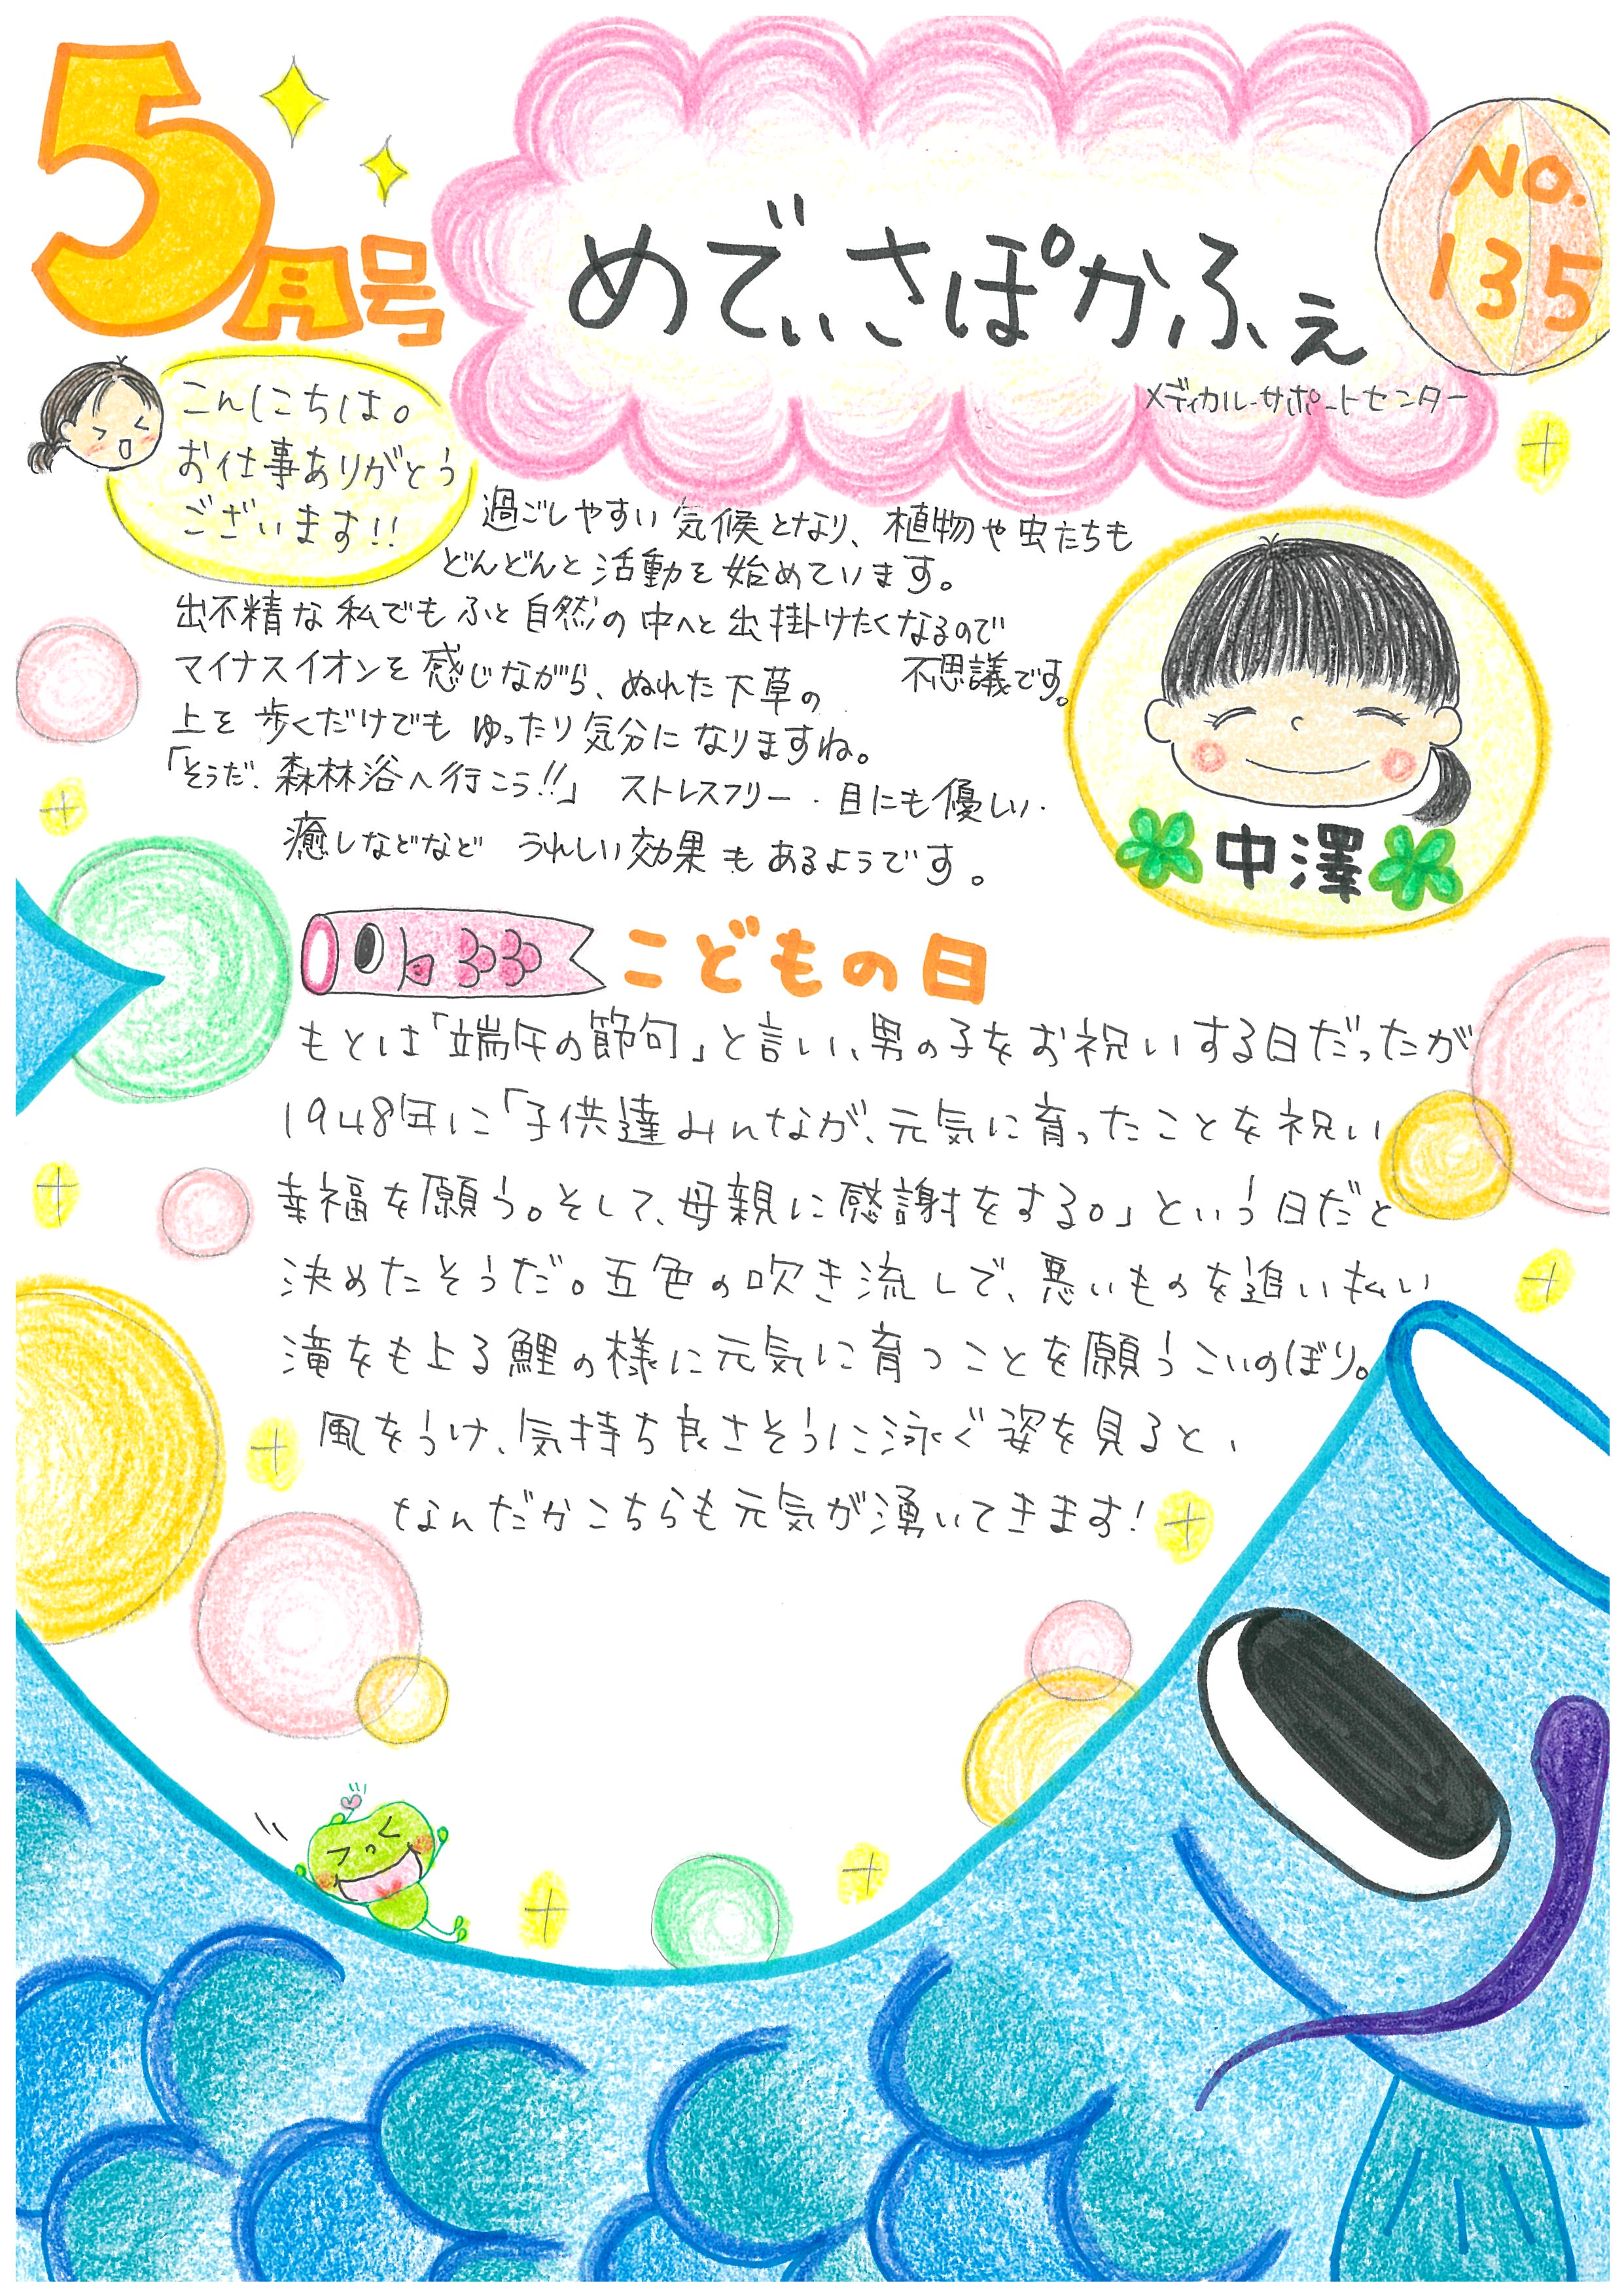 5月号
めでぃさぽかふぇ
NO.
135
メディカルサポートセンター
こんにちは。
お仕事ありがとう
ございます!!
過ごしやすい気候となり、植物や虫たちも
どんどんと活動を始めています。
出不精な私でもふと自然の中へと出掛けたくなるので
不思議です。
マイナスイオンを感じながら、ぬれた下草の
上を歩くだけでもゆったり気分になりますね。
「そうだ、森林浴へ行こう!!」 ストレスフリー・目にも優しい・
癒しなどなど うれしい効果もあるようです。
中澤
こどもの日
もとは「端午の節句」と言い、男の子をお祝いする日だったが
1948年に「子供達みんなが、元気に育ったことを祝い
幸福を願う。そして、母親に感謝をする。」という日だと
決めたそうだ。五色の吹き流しで、悪いものを追い払い
滝をも上る鯉の様に元気に育つことを願うこいのぼり。
風をうけ、気持ち良さそうに泳ぐ姿を見ると、
なんだかこちらも元気が湧いてきます!